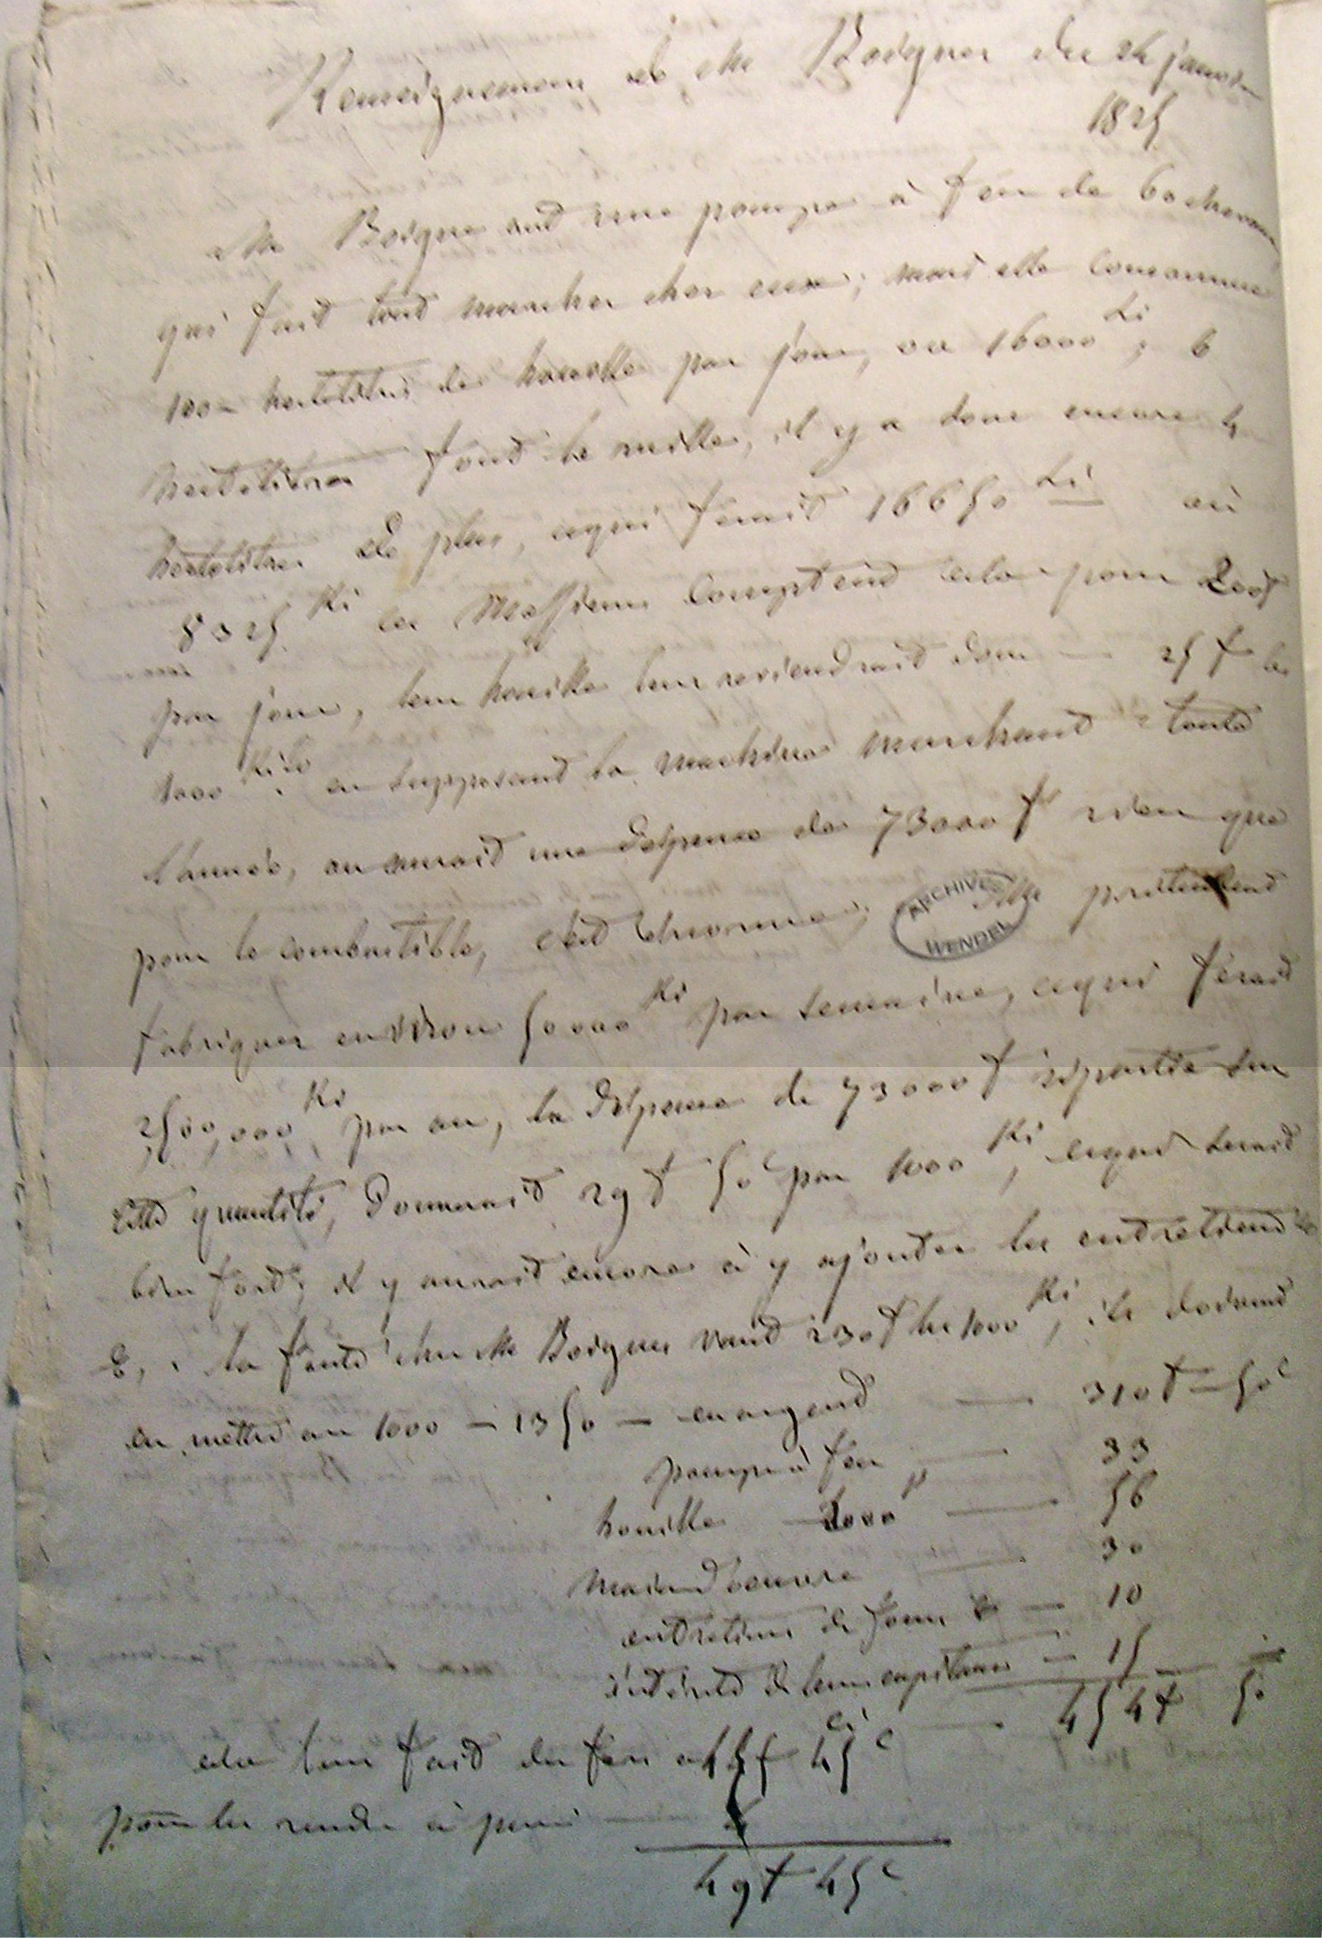 Renseignemens de Mr Boigues du 24 janvier
1825
Mr Boigue ont une pompe à feu de 60 chevaux
qui fait tout marcher chez eux; mais elle consomme
100 hectolitres de houille par jour, ou 16000 Li; 6
hectolitres font le mille, il y a donc encore 4
hectolitres de plus, cequi ferait 16650 Li ou
8325 Ki ces Messieurs comptent cela pour 200f
par jour, leur houille leur reviendrait donc — 25 f les
1000 Kilo en supposant la machine marchant toute
l'année, on aurait une dépense de 73000 f rien que
pour le combustible, c'est énorme; Mr prétendent
ARCHIVES WENDEL
fabriquer environ 50000 Ki par semaine, cequi ferait
2,500,000 Ki par an, la dépense de 73000 f répartie sur
cette quantité, donnerait 29 f 50c par 1000 Ki, cequi serait
bien fort; il y aurait encore à y ajouter les entretiens
&, . la fonte chez Mr Boigues vaut 230 f les 1000 Ki, ils doivent
en mettre au 1000 — 1350 — en argent — 310 f — 50c
pompe à feu — 33
houille — 2000 — 56
main d'oeuvre — 30
entretiens de fours & — 10
intérêts de leurs capitaux — 15
— 454 f 50
cela leur fait du fer a 45 f 45c
pour les rendre à paris — 4
49 f 45c